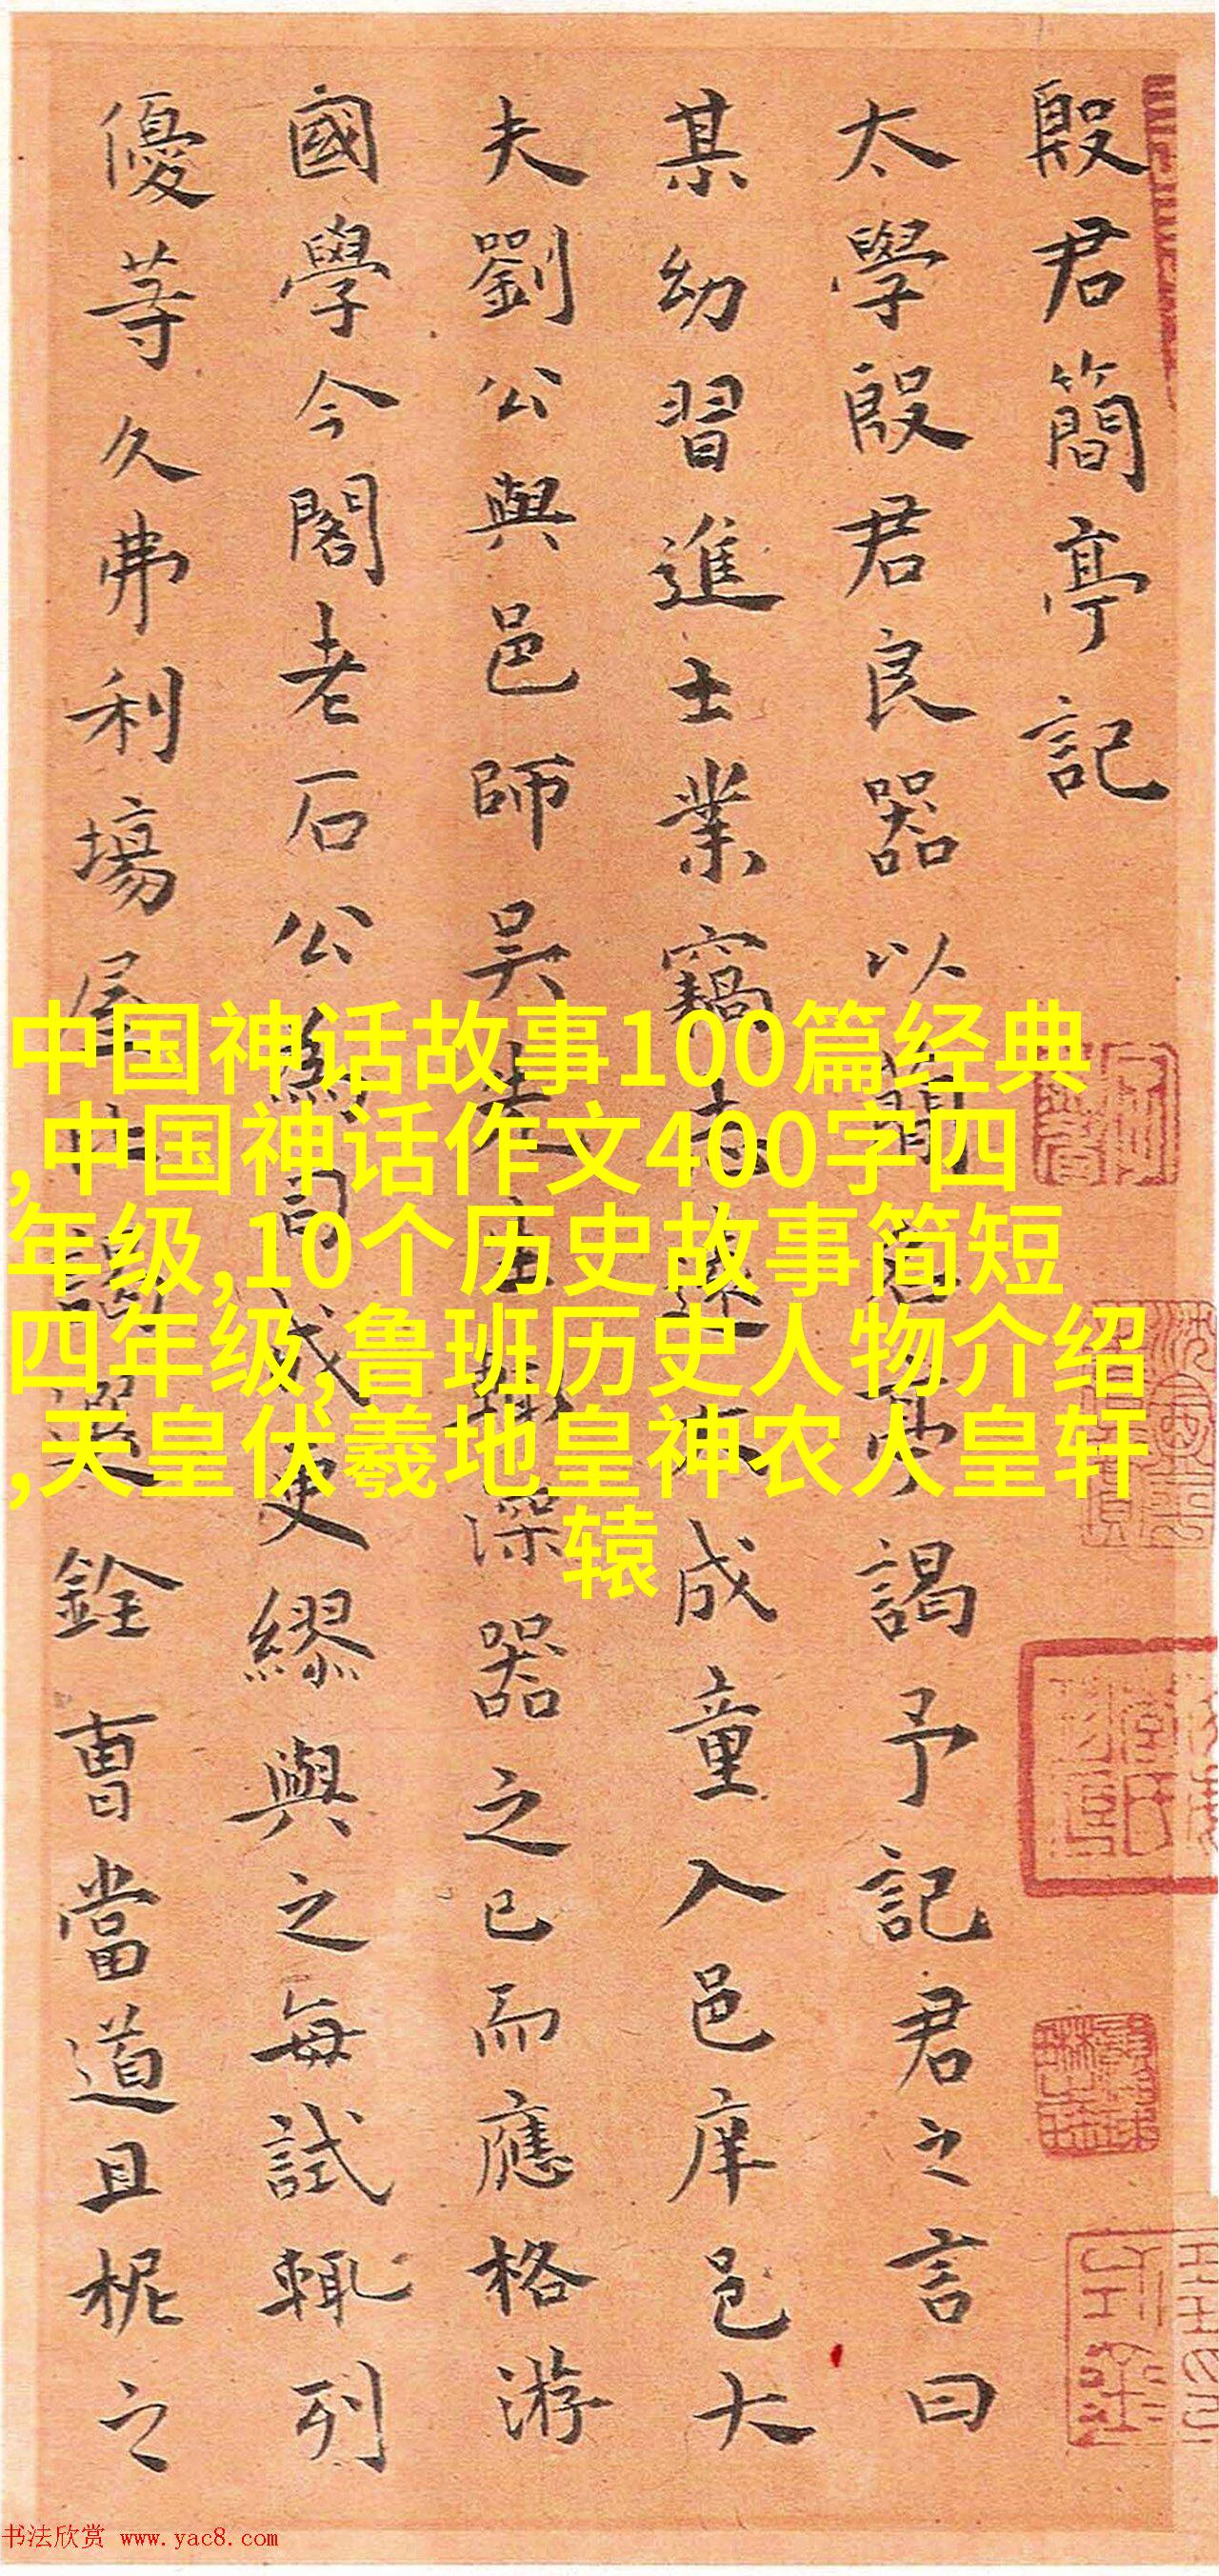 殷君簡亭記
太學殷君良器以簡亭謁予記君之言曰
某幼習進士業竊志成童入邑庠邑大
夫劉公與邑師吳先生深器之已而應格游
國學今閣老石公為司成吏繆與之每試輒列
優等久弗利場屋謁選銓曹當道且柅之
中国神话故事100篇经典
,中国神话作文400字四
年级,10个历史故事简短
四年级,鲁班历史人物介绍
,天皇伏羲地皇神农人皇轩
辕
书法欣赏 www.yac8.com